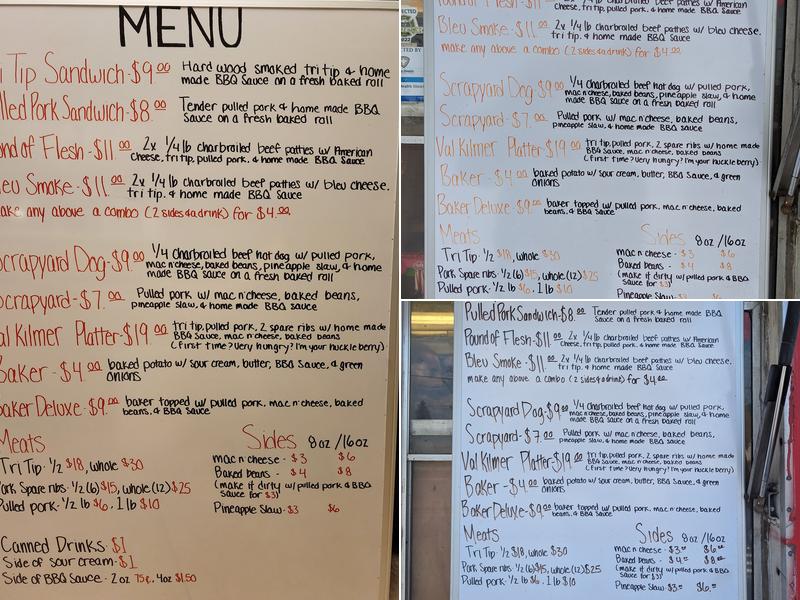 MENU
i Tip Sandwich-$9.00 Hard wood smoked tri tip & home
made BBQ Sauce on a fresh baked roll
lled Pork Sandwich-$8.00 Tender pulled pork & home made BBQ
Sauce on a fresh baked roll
ound of Flesh-$11.00 2x 1/4 lb charbroiled beef patties w/ American
cheese, tri tip, pulled pork, & home made BBQ Sauce
leu Smoke-$11.00 2x 1/4 lb charbroiled beef patties w/ bleu cheese.
tri tip. & home made BBQ Sauce
ake any above a combo (2 sides & a drink) for $4.00
Scrapyard Dog-$9.00 1/4 charbroiled beef hot dog w/ pulled pork,
mac n' cheese, baked beans, pineapple slaw, & home
made BBQ sauce on a fresh baked roll
Scrapyard-$7.00 Pulled pork w/ mac n' cheese, baked beans,
pineapple slaw, & home made BBQ Sauce
al Kilmer Platter-$19.00 tri tip, pulled pork, 2 spare ribs w/ home made
BBQ Sauce, mac n' cheese, baked beans
(First time? Very hungry? I'm your huckle berry)
Baker-$4.00 baked potato w/ sour cream, butter, BBQ Sauce, & green
onions
aker Deluxe-$9.00 baker topped w/ pulled pork, mac n' cheese, baked
beans, & BBQ Sauce
Meats
Tri Tip 1/2 $18, whole $30
ork Spare ribs 1/2 (6) $15, whole (12) $25
Pulled pork 1/2 lb $6. 1 lb $10
Sides 8oz/16oz
mac n cheese - $3 $6
Baked beans - $4 $8
(make it dirty w/ pulled pork & BBQ
Sauce for $3)
Pineapple Slaw-$3 $6
Canned Drinks-$1
Side of sour cream-$1
Side of BBQ Sauce - 2oz 75¢, 4oz $1.50
ound of Flesh-$11.00 2x 1/4 lb charbroiled beef patties w/ American
cheese, tri tip, pulled pork, & home made BBQ Sauce
Bleu Smoke-$11.00 2x 1/4 lb charbroiled beef patties w/ bleu cheese.
tri tip. & home made BBQ Sauce
make any above a combo (2 sides & a drink) for $4.00
Scrapyard Dog-$9.00 1/4 charbroiled beef hot dog w/ pulled pork,
mac n' cheese, baked beans, pineapple slaw, & home
made BBQ sauce on a fresh baked roll
Scrapyard-$7.00 Pulled pork w/ mac n' cheese, baked beans,
pineapple slaw, & home made BBQ Sauce
Val Kilmer Platter-$19.00 tri tip, pulled pork, 2 spare ribs w/ home made
BBQ Sauce, mac n' cheese, baked beans
(First time? Very hungry? I'm your huckle berry)
Baker-$4.00 baked potato w/ sour cream, butter, BBQ Sauce, & green
onions
Baker Deluxe-$9.00 baker topped w/ pulled pork, mac n' cheese, baked
beans, & BBQ Sauce
Meats
Tri Tip 1/2 $18, whole $30
Pork Spare ribs 1/2 (6) $15, whole (12) $25
Pulled pork 1/2 lb $6. 1 lb $10
Sides 8oz/16oz
mac n cheese - $3 $6
Baked beans - $4 $8
(make it dirty w/ pulled pork & BBQ
Sauce for $3)
Pineapple Slaw
Pulled Pork Sandwich-$8.00 Tender pulled pork & home made BBQ
Sauce on a fresh baked roll
Pound of Flesh-$11.00 2x 1/4 lb charbroiled beef patties w/ American
cheese, tri tip, pulled pork, & home made BBQ Sauce
Bleu Smoke-$11.00 2x 1/4 lb charbroiled beef patties w/ bleu cheese.
tri tip. & home made BBQ Sauce
make any above a combo (2 sides & a drink) for $4.00
Scrapyard Dog-$9.00 1/4 charbroiled beef hot dog w/ pulled pork,
mac n' cheese, baked beans, pineapple slaw, & home
made BBQ sauce on a fresh baked roll
Scrapyard-$7.00 Pulled pork w/ mac n' cheese, baked beans,
pineapple slaw, & home made BBQ Sauce
Val Kilmer Platter-$19.00 tri tip, pulled pork, 2 spare ribs w/ home made
BBQ Sauce, mac n' cheese, baked beans
(First time? Very hungry? I'm your huckle berry)
Baker-$4.00 baked potato w/ sour cream, butter, BBQ Sauce, & green
onions
Baker Deluxe-$9.00 baker topped w/ pulled pork, mac n' cheese, baked
beans, & BBQ Sauce
Meats
Tri Tip 1/2 $18, whole $30
Pork Spare ribs 1/2 (6) $15, whole (12) $25
Pulled pork 1/2 lb $6. 1 lb $10
Sides 8oz/16oz
mac n cheese - $3.00 $6.00
Baked beans - $4.00 $8.00
(make it dirty w/ pulled pork & BBQ
Sauce for $3)
Pineapple Slaw-$3.00 $6.00